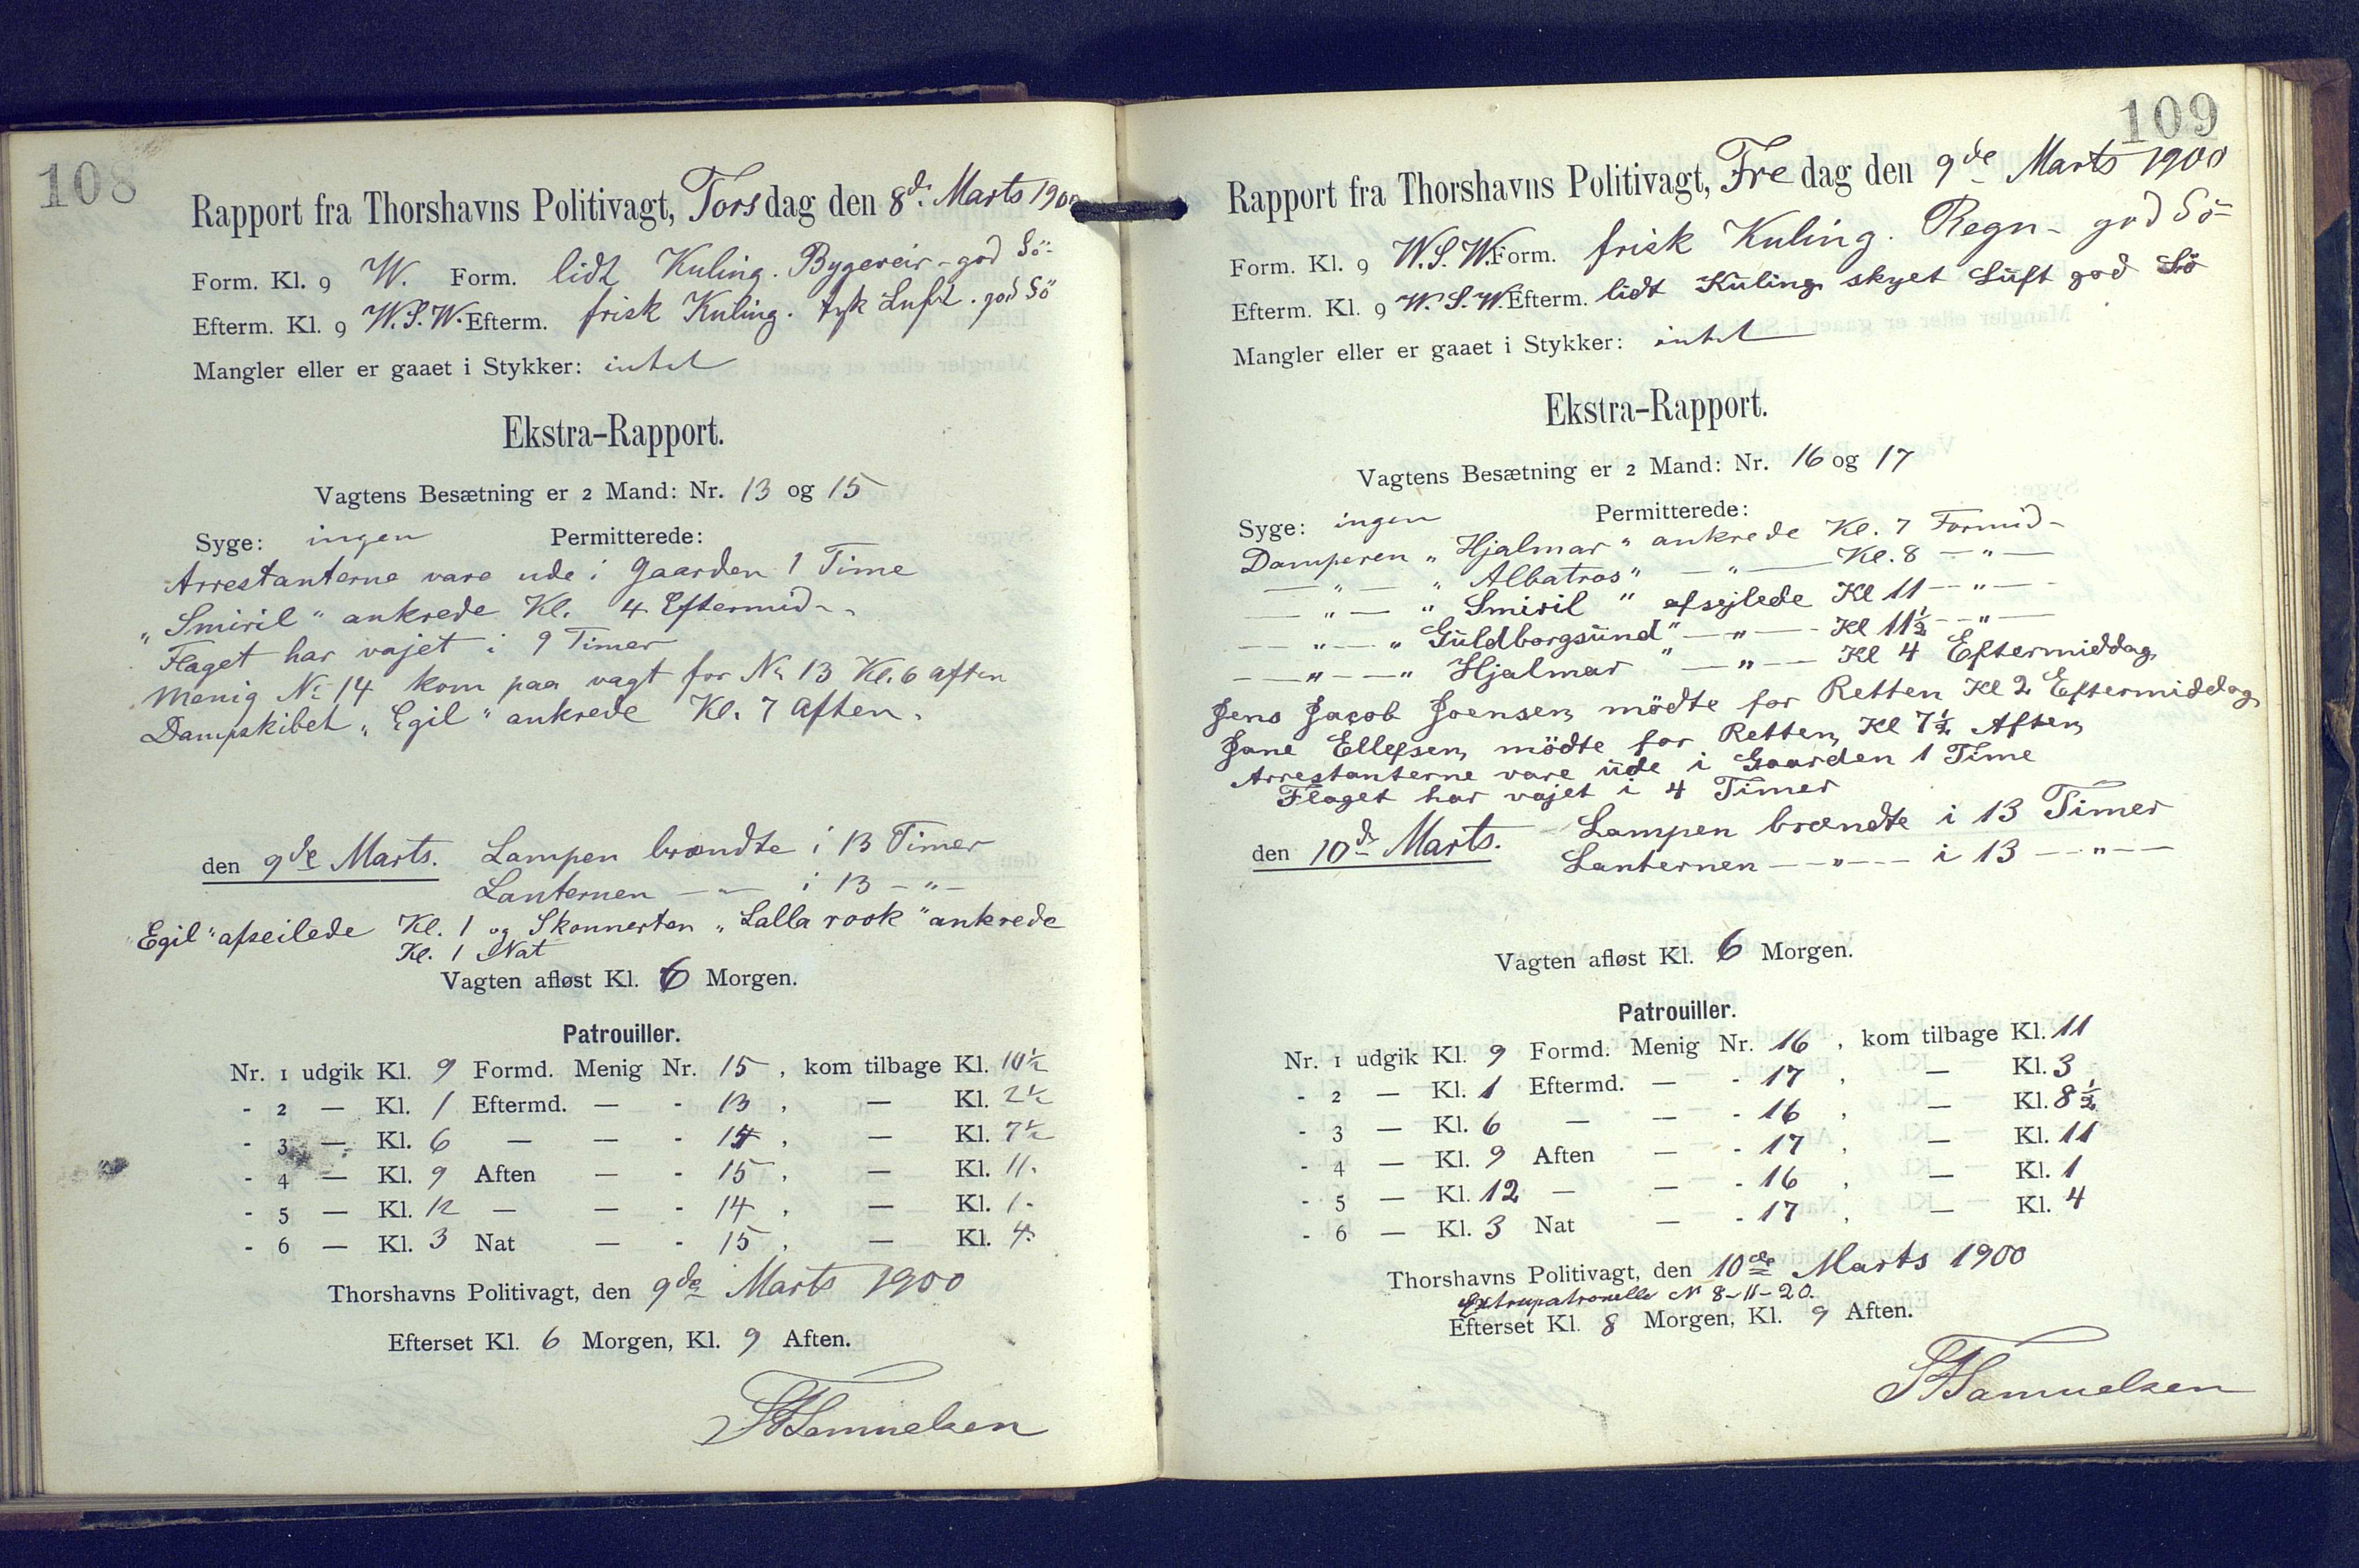 108
Rapport fra Thorshavns Politivagt, Torsdag den 8d. Marts 1900
Form. Kl. 9 W. Form. lidt Kuling. Bygeveir - god Sö-
Efterm. Kl. 9 W.S.W. Efterm. frisk Kuling. tyk Luft. god Sö
Mangler eller er gaaet i Stykker: intet
Ekstra-Rapport.
Vagtens Besætning er 2 Mand: Nr. 13 og 15
Syge: ingen Permitterede:
Arrestanterne vare ude i Gaarden 1 Time
„Smiril“ ankrede Kl. 4 Eftermid-.
Flaget har vajet i 9 Timer
Menig No 14 kom paa vagt for No 13 Kl. 6 aften
Dampskibet „Egil“ ankrede Kl. 7 Aften.
den 9de Marts. Lampen brændte i 13 Timer
Lanternen — " — i 13 - " -
Egil“ afseilede Kl. 1 og Skonnerten „Lalla rook“ ankrede
Kl. 1 Nat
Vagten afløst Kl. 6 Morgen.
Patrouiller.
Nr. 1 udgik Kl. 9 Formd. Menig Nr. 15, kom tilbage Kl. 10½
- 2 — Kl. 1 Eftermd. — - 13, — Kl. 2½
- 3 — Kl. 6 — — - 14, — Kl. 7½
- 4 — Kl. 9 Aften — - 15, — Kl. 11.
- 5 — Kl. 12 — — - 14, — Kl. 1.
- 6 — Kl. 3 Nat — - 15, — Kl. 4.
Thorshavns Politivagt, den 9de Marts 1900
Efterset Kl. 6 Morgen, Kl. 9 Aften.
Samuelsen
109
Rapport fra Thorshavns Politivagt, Fredag den 9de Marts 1900
Form. Kl. 9 W.S.W. Form. frisk Kuling. Regn - god Sö-
Efterm. Kl. 9 W.S.W. Efterm. lidt Kuling skyet Luft god Sö
Mangler eller er gaaet i Stykker: intet
Ekstra-Rapport.
Vagtens Besætning er 2 Mand: Nr. 16 og 17
Syge: ingen Permitterede:
Damperen „Hjalmar“ ankrede Kl. 7 Formid-
— " — „Albatros“ — " — Kl. 8 — " —
— " — „Smiril“ afsejlede Kl 11 — " —
— " — „Guldborgsund“ — " — Kl 11½ — " —
— " — „Hjalmar“ — " — Kl 4 Eftermiddag
Jens Jacob Joensen mödte for Retten Kl 2 Eftermiddag
Jane Ellefsen mödte for Retten Kl 7½ Aften
Arrestanterne vare ude i Gaarden 1 Time
Flaget har vajet i 4 Timer
den 10d. Marts. Lampen brændte i 13 Timer
Lanternen — " — i 13 — " —
Vagten afløst Kl. 6 Morgen.
Patrouiller.
Nr. 1 udgik Kl. 9 Formd. Menig Nr. 16, kom tilbage Kl. 11
- 2 — Kl. 1 Eftermd. — - 17, — Kl. 3
- 3 — Kl. 6 — — - 16, — Kl. 8½
- 4 — Kl. 9 Aften — - 17, — Kl. 11
- 5 — Kl. 12 — — - 16, — Kl. 1
- 6 — Kl. 3 Nat — - 17, — Kl. 4
Thorshavns Politivagt, den 10de Marts 1900
Extrapatrouille N 8-11-20.
Efterset Kl. 8 Morgen, Kl. 9 Aften.
Samuelsen